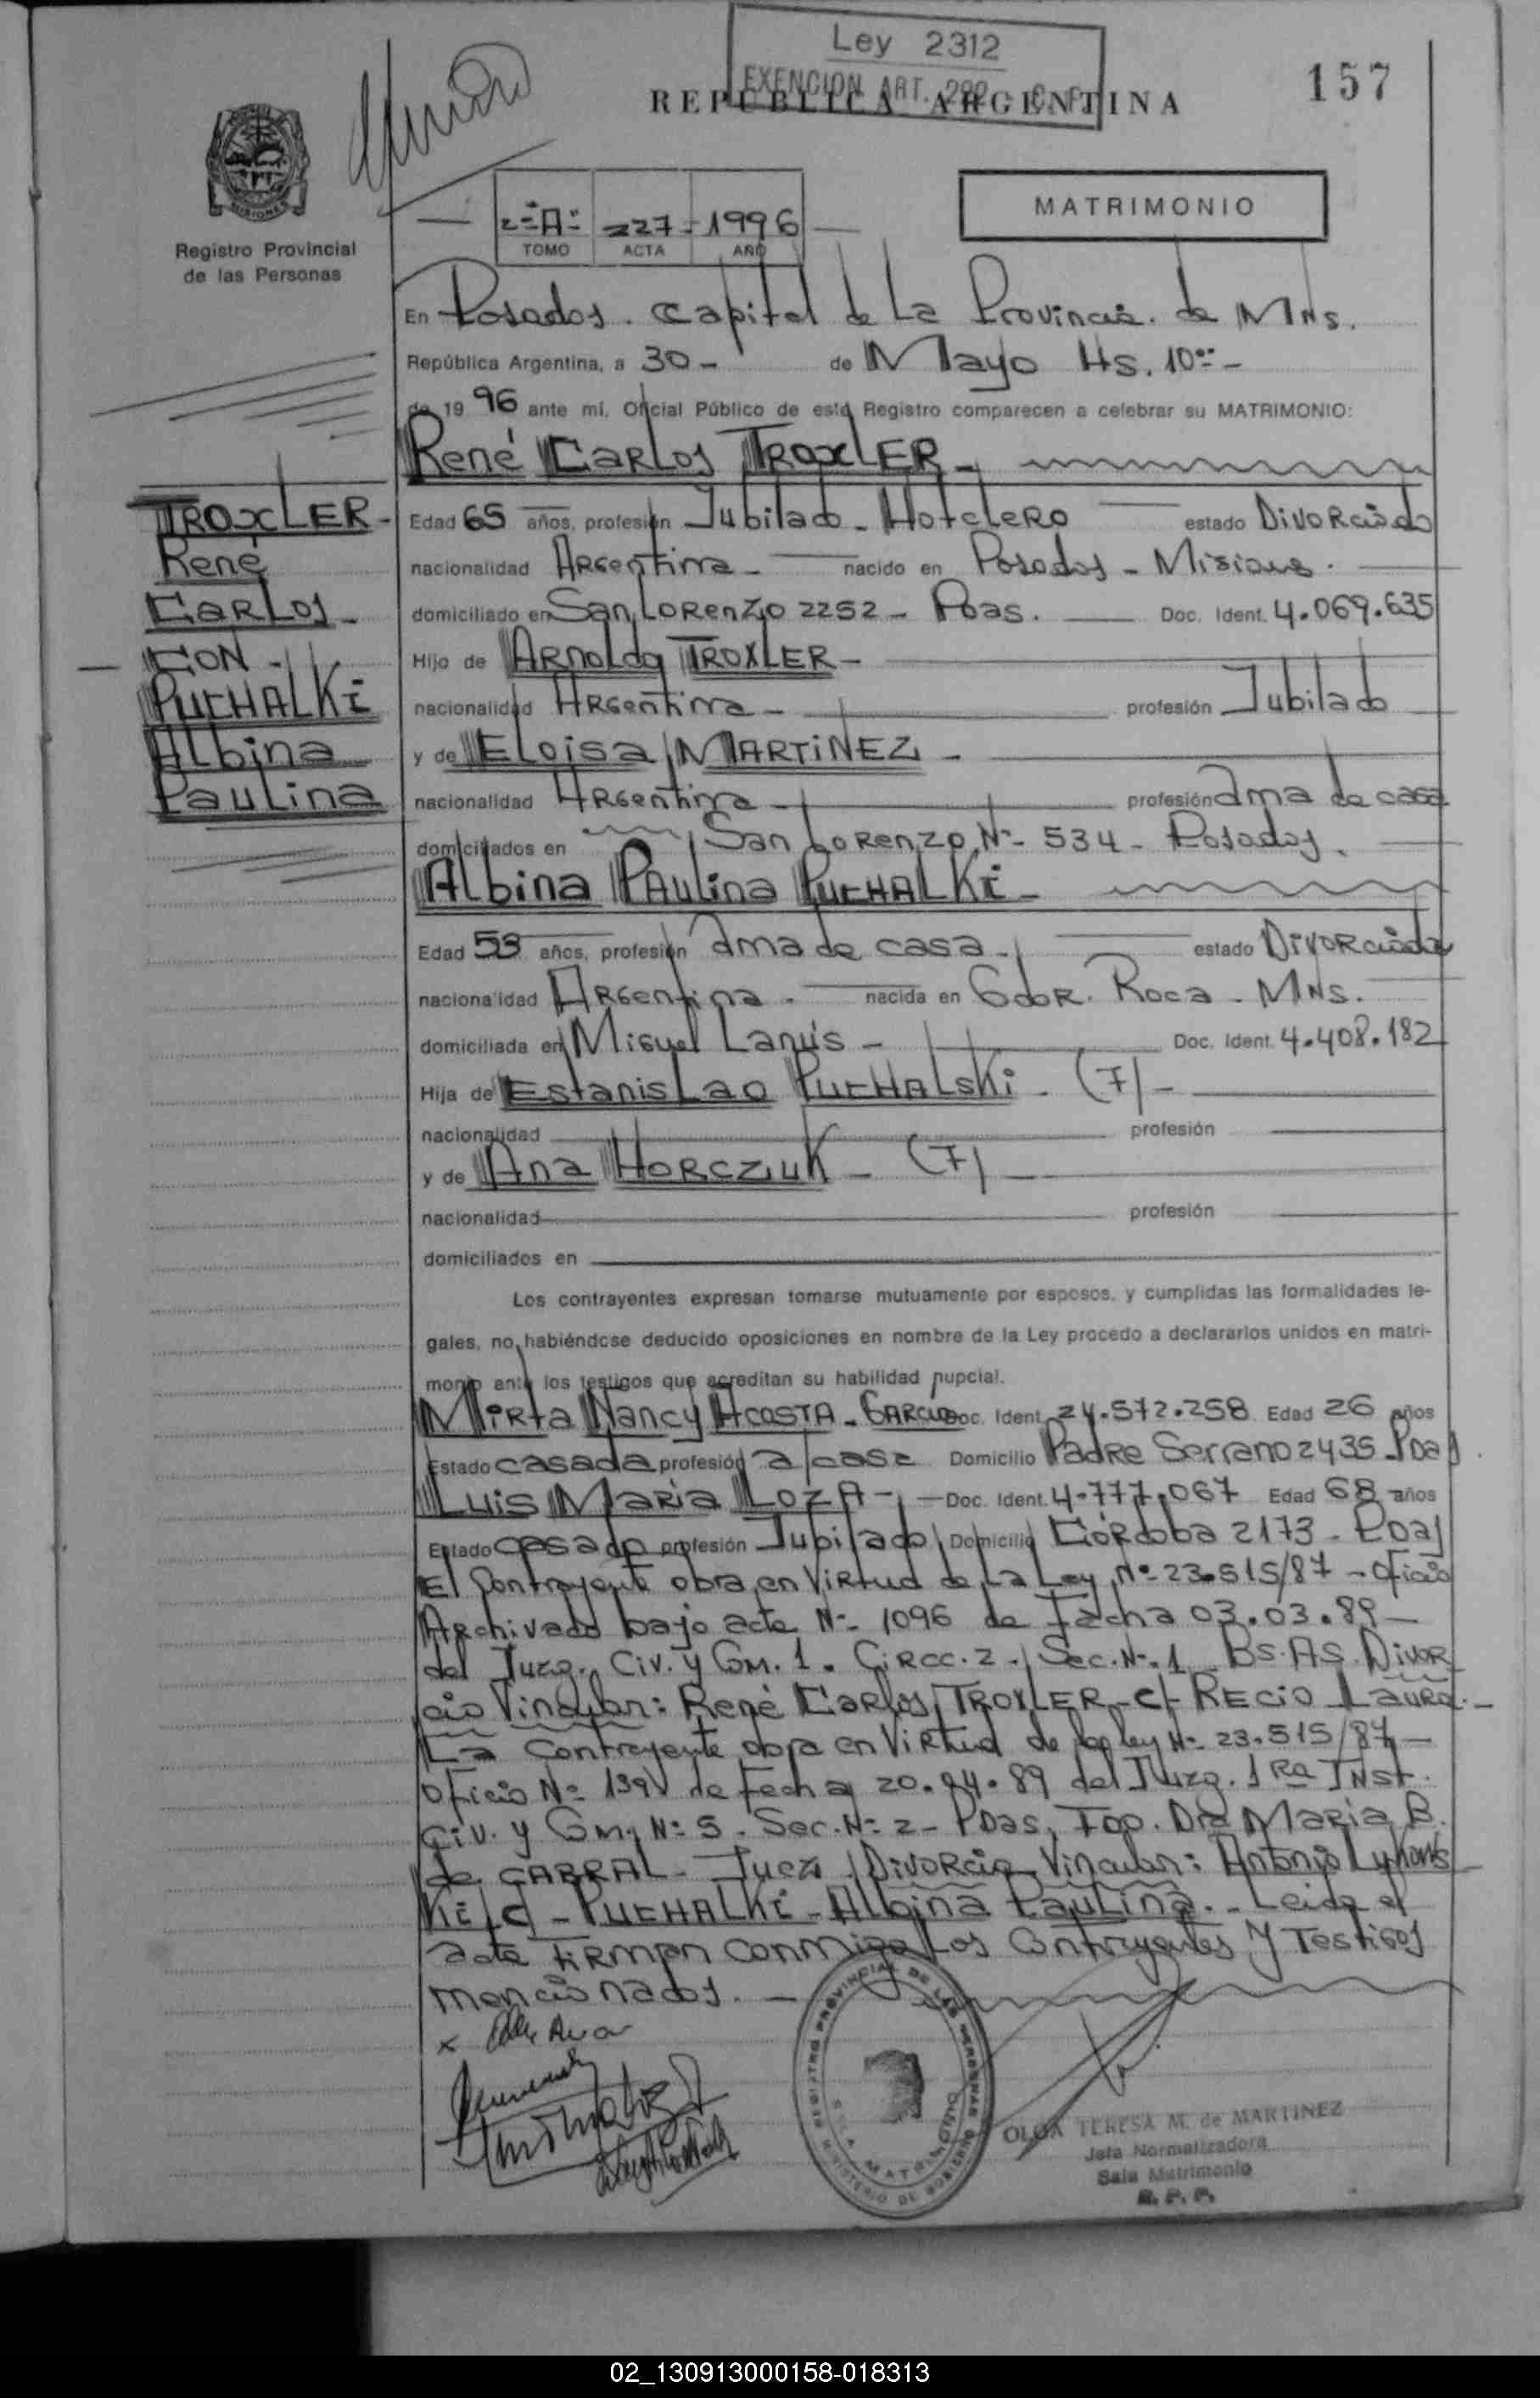 Ley 2312
EXENCION ART.
157
REPUBLICA ARGENTINA
MISIONES
Registro Provincial
de las Personas
2=A= 227- 1996
TOMO ACTA AÑO
MATRIMONIO
En Posadas. Capital de La Provincia. de Mns.
República Argentina, a 30- de Mayo Hs. 10
de 19 96 ante mí, Oficial Público de este Registro comparecen a celebrar su MATRIMONIO:
René Carlos TROXLER-
TROXLER-
René
Carlos-
CON-
PUCHALKi
Albina
Paulina
Edad 65 años, profesión Jubilado-Hotelero estado Divorciado
nacionalidad Argentina- nacido en Posadas-Misiones.
domiciliado en San Lorenzo 2252- Poas. Doc. Ident. 4.069.635
Hijo de Arnoldo TROXLER-
nacionalidad Argentina- profesión Jubilado
y de Eloisa MARTiNEZ-
nacionalidad Argentina- profesión Ama de casa
domiciliados en San Lorenzo Nº- 534- Posadas.
Albina Paulina PUCHALKi-
Edad 53 años, profesión Ama de casa- estado Divorciada
nacionalidad Argentina- nacida en Gdor. Roca-Mns.
domiciliada en Miguel Lanús- Doc. Ident. 4.408.182
Hija de Estanislao PUCHALSKi- (7)-
nacionalidad profesión
y de Ana HORCZIUK- (7)
nacionalidad profesión
domiciliados en
Los contrayentes expresan tomarse mutuamente por esposos, y cumplidas las formalidades le-
gales, no habiéndose deducido oposiciones en nombre de la Ley procedo a declararlos unidos en matri-
monio ante los testigos que acreditan su habilidad nupcial.
Mirta Nancy ACOSTA-GARCIA Doc. Ident. 24.572.258 Edad 26 años
Estado casada profesión a/casa Domicilio Padre Serrano 2435-Pdas
Luis Maria LOZA- Doc. Ident. 4.777.067 Edad 68 años
Estado casado profesión Jubilado Domicilio Córdoba 2173-Pdas
El Contrayente obra en Virtud de La Ley Nº-23.515/87-Oficio
Archivado bajo acta Nº- 1096 de Fecha 03.03.89-
del Juzg. Civ. y Com. 1. Circc. 2. Sec. Nº-1 Bs.As. Divor
cio Vincular: René Carlos TROXLER-c/-RECIO Laura.-
La Contrayente obra en Virtud de la ley Nº-23.515/87-
Oficio Nº de Fecha 20.04.89 del Juzg. 1Ra Inst.
Civ. y Com. Nº 5. Sec. Nº 2-Pdas, Fdo. Dra Maria B.
de CABRAL-Juez Divorcio Vincular: Antonio
Ki/c/-PUCHALKi-Albina Paulina.-Leida el
acta firman conmigo Los Contrayentes y Testigos
mencionados.
REGISTRO PROVINCIAL DE LAS PERSONAS
SALA MATRIMONIO
MINISTERIO DE GOBIERNO
OLGA TERESA M. de MARTINEZ
Jefa Normalizadora
Sala Matrimonio
R. P. P.
02_130913000158-018313